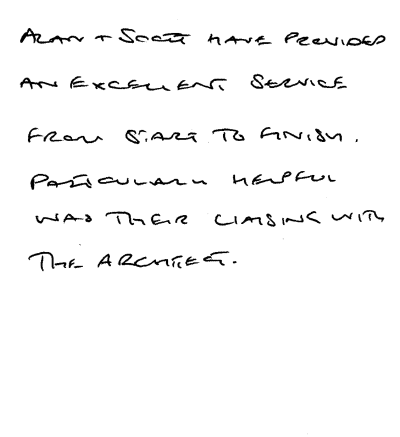 ALAN + SCOTT HAVE PROVIDED
AN EXCELLENT SERVICE
FROM START TO FINISH.
PARTICULARLY HELPFUL
WAS THEIR LIAISING WITH
THE ARCHITECT.